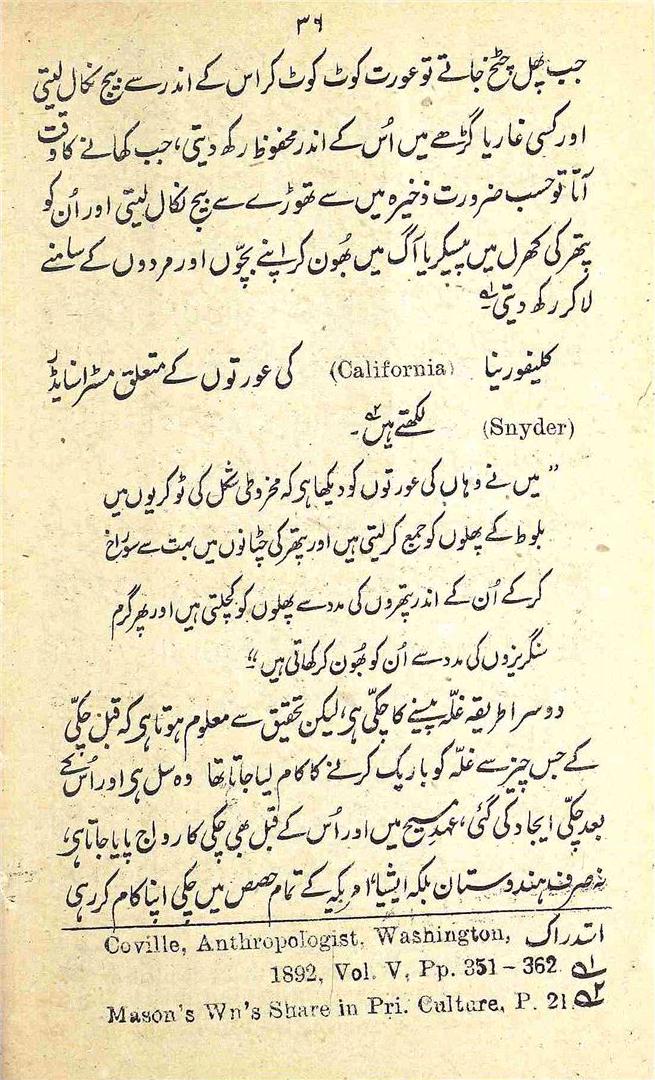 ۳۶
جب پھل چٹخ جاتے تو عورت کوٹ کوٹ کر اس کے اندر سے بیج نکال لیتی
اور کسی غار یا گڑھے میں اُس کے اندر محفوظ رکھ دیتی، جب کھانے کا وقت
آتا تو حسب ضرورت ذخیرہ میں سے تھوڑے سے بیج نکال لیتی اور اُن کو
پتھر کی کھرل میں پیسکر یا آگ میں بھُون کر اپنے بچّوں اور مردوں کے سامنے
لا کر رکھ دیتی۔ ۱؎
کلیفورینا (California) کی عورتوں کے متعلق مسٹر اسنایڈر
(Snyder) لکھتے ہیں ۲؎۔
” میں نے وہاں کی عورتوں کو دیکھا ہی کہ مخروطی شکل کی ٹوکریوں میں
بلوط کے پھلوں کو جمع کر لیتی ہیں اور پتھر کی چٹانوں میں بہت سے سوراخ
کر کے اُن کے اندر پتھروں کی مدد سے پھلوں کو کچلتی ہیں اور پھر گرم
سنگریزوں کی مدد سے اُن کو بھُون کر کھاتی ہیں “
دوسرا طریقہ غلّہ پیسنے کا چکّی ہی، لیکن تحقیق سے معلوم ہوتا ہی کہ قبل چکّی
کے جس چیز سے غلّہ کو باریک کرنے کا کام لیا جاتا تھا وہ سل ہی اور اُس کے
بعد چکّی ایجاد کی گئی، عہدِ مسیح میں اور اُس کے قبل بھی چکی کا رواج پایا جاتا ہی،
نہ صرف ہندوستان بلکہ ایشیا، امریکہ کے تمام حصص میں چکی اپنا کام کر رہی
استدراک Coville, Anthropologist, Washington,
۱؎ 1892, Vol. V, Pp. 351 – 362
۲؎ Mason's Wn's Share in Pri. Culture, P. 21.